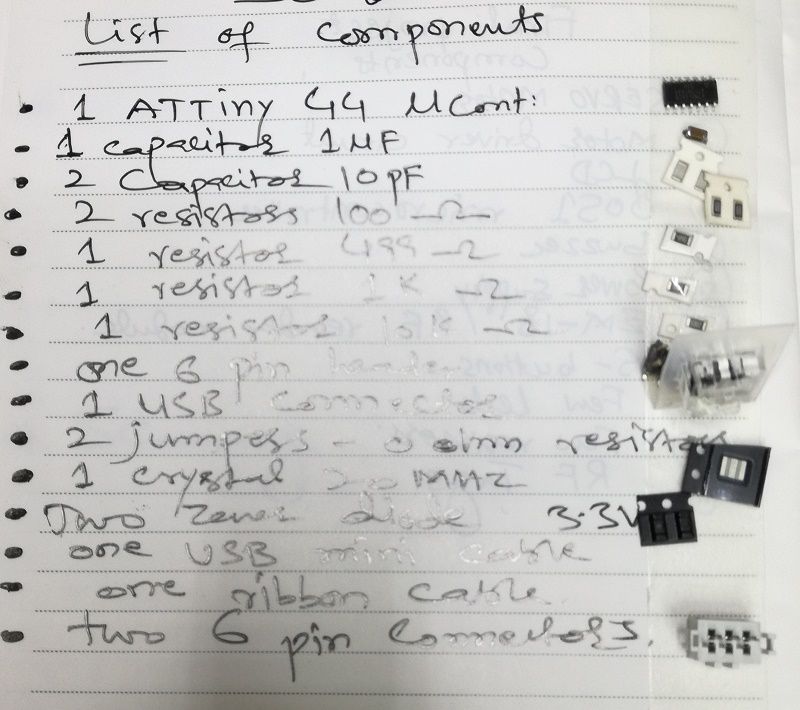 List of components
1 ATTiny 44 MCont:
1 capacitor 1MF
2 Capacitor 10pF
2 resistors 100 -Ω-
1 resistor 499 -Ω
1 resistor 1K -Ω
1 resistor 10K -Ω
one 6 pin header
1 USB Connector
2 jumpers - 0 ohm resistors
1 crystal 20 MHZ
Two Zener diode 3.3V
one USB mini cable
one ribbon cable
two 6 pin Connectors.